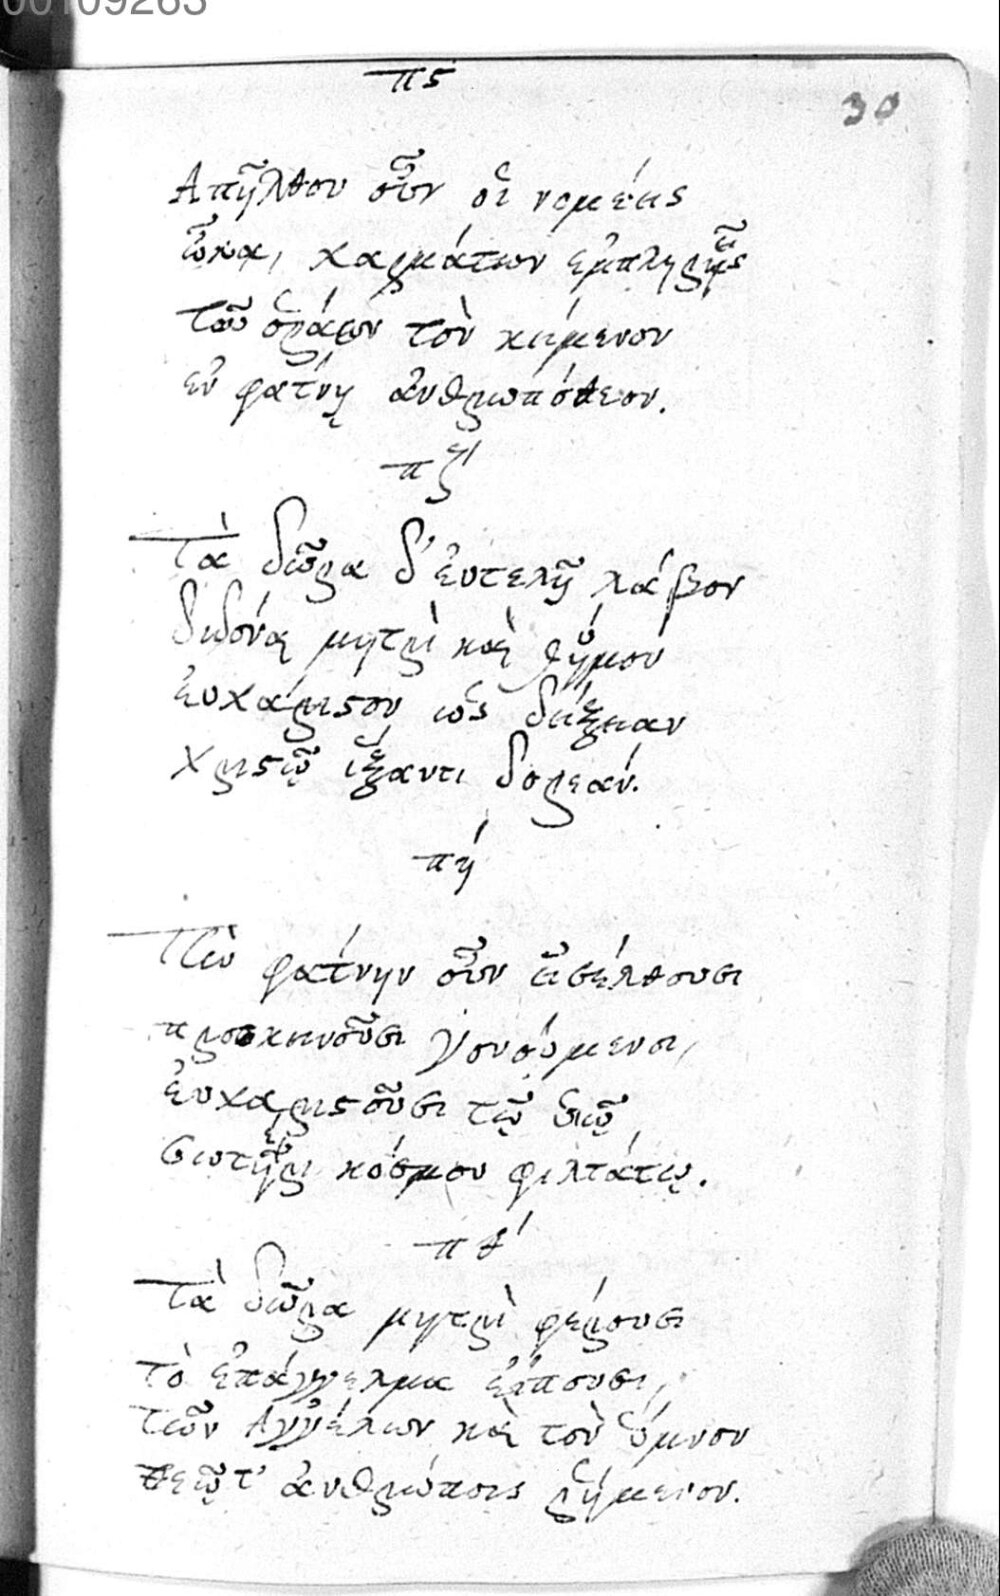 00109263
πς
30
Απῆλθον οὖν οἱ νομέεις
ὦκα, χαρμάτων ἐμπληρεῖς
τοῦ ὁράειν τὸν κείμενον
ἐν φατνῃ ἀνθρωπόθεον.
πζ'
Τὰ δῶρα δ' ἐυτελῆ λάβον
διδόναι μητρὶ καὶ
ἐυχάριστον ὡς δείξειαν
χριστῷ δορεάν.
πή
Τὴν φατνην οὖν εἰσέλθουσι
προσκυνοῦσι γονούμενοι,
ἐυχαριστοῦσι τῷ υἱῷ
σωτῆρι κόσμου φιλτάτῳ.
πθ'
Τὰ δῶρα μητρὶ φέρουσι
τὸ ἐπάγγελμα ἔιπουσι,
τῶν Αγγέλων καὶ τὸν ὕμνον
θεῷ τ' ἀνθρώποις